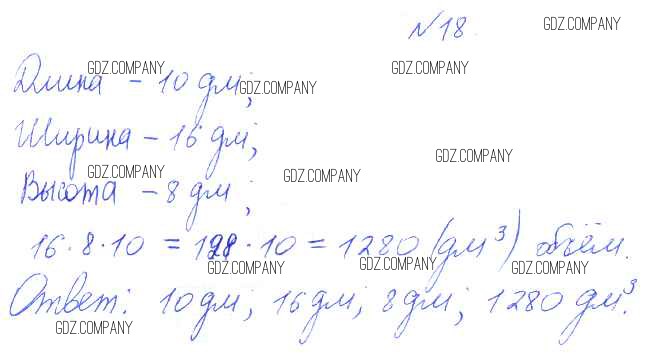 №18.
Длина – 10 дм;
Ширина – 16 дм;
Высота – 8 дм;
16·8·10 = 128·10 = 1280 (дм³) объём.
Ответ: 10 дм; 16 дм; 8 дм; 1280 дм³.
GDZ.COMPANY
GDZ.COMPANY
GDZ.COMPANY
GDZ.COMPANY
GDZ.COMPANY
GDZ.COMPANY
GDZ.COMPANY
GDZ.COMPANY
GDZ.COMPANY
GDZ.COMPANY
GDZ.COMPANY